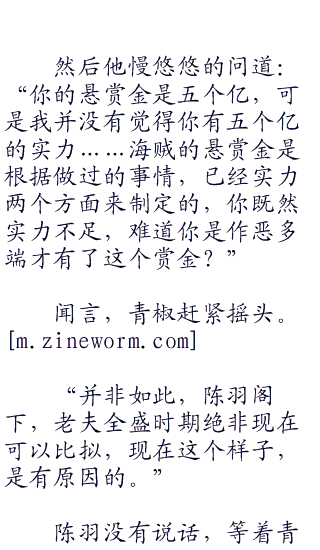 然后他慢悠悠的问道：
“你的悬赏金是五个亿，可
是我并没有觉得你有五个亿
的实力……海贼的悬赏金是
根据做过的事情，已经实力
两个方面来制定的，你既然
实力不足，难道你是作恶多
端才有了这个赏金？”
闻言，青椒赶紧摇头。
[m.zineworm.com]
“并非如此，陈羽阁
下，老夫全盛时期绝非现在
可以比拟，现在这个样子，
是有原因的。”
陈羽没有说话，等着青